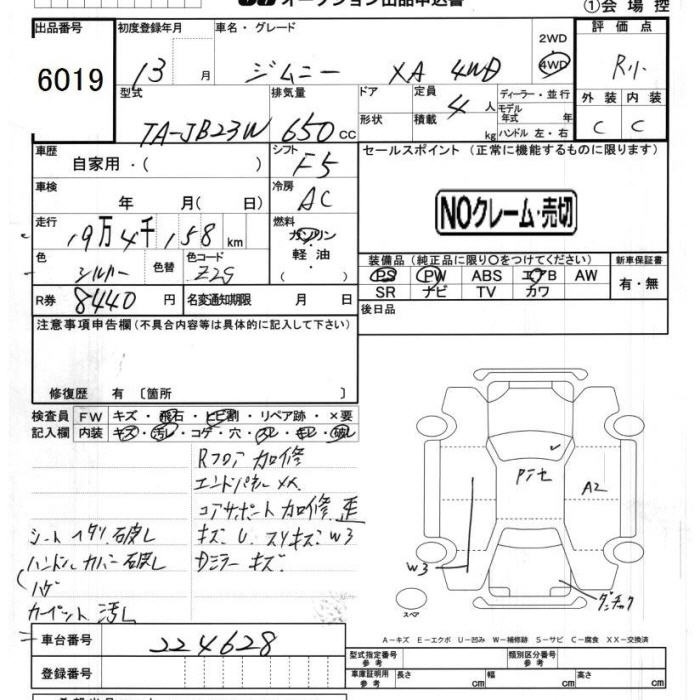 オークション出品申込書
①会場控
出品番号
6019
初度登録年月
13 月
車名・グレード
ジムニー XA 4WD
2WD
4WD
評価点
R小
外装 内装
C C
型式
TA-JB23W
排気量
650 cc
ドア
形状
定員
4 人
積載
kg
ディーラー・並行
モデル年式 年
ハンドル 左・右
車歴
自家用・( )
シフト
F5
セールスポイント (正常に機能するものに限ります)
NOクレーム・売切
車検
年 月( 日)
冷房
AC
走行
19万4千158 km
燃料
ガソリン
・
軽油
・
( )
色
シルバー
色替
色コード
Z2S
装備品(純正品に限り○をつけてください)
PS PW ABS エアB AW
SR ナビ TV カワ
新車保証書
有・無
R券 8440 円
名変通知期限 月 日
後日品
注意事項申告欄(不具合内容等は具体的に記入して下さい)
修復歴 有〔箇所 〕
検査員
記入欄
FW キズ・飛石・ヒビ割・リペア跡・×要
内装 キズ・汚レ・コゲ・穴・スレ・キレ・破レ
Rフロア加修
エンドパネルXX
コアサポート加修 歪
キズU スリキズ W3
Dミラーキズ
シートヘタリ 破レ
ハンドルカバー破レ
ハゲ
カーペット汚レ
A2
W3
スペア
A-キズ E-エクボ U-凹み W-補修跡 S-サビ C-腐食 XX-交換済
車台番号
224628
登録番号
型式指定番号
参考
類別区分番号
参考
車庫証明用
参考
長さ cm
幅 cm
高さ cm